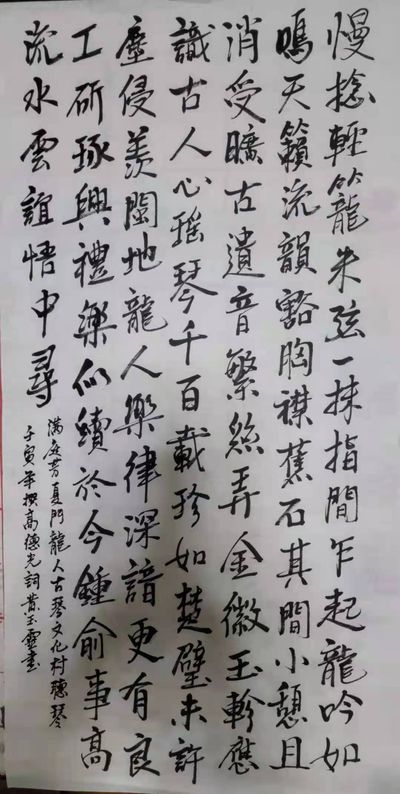 慢捻輕籠朱弦一抹指間乍起龍吟如
鳴天籟流韻豁胸襟蕉石其間小憩且
消受曠古遺音繁絲弄金徽玉軫應
識古人心瑶琴千百載珍如楚璧未許
塵侵羨閩地龍人樂律深諳更有良
工斫琢興禮樂似續於今鍾俞事高
流水雲誼悟中尋
满庭芳夏門龍人古琴文化村聽琴
壬寅年撰高德光詞黄玉靈書